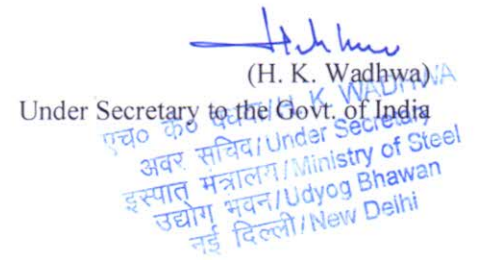 (H. K. Wadhwa)
Under Secretary to the Govt. of India
एच० के० वधवा/H. K. WADHWA
अवर सचिव/Under Secretary
इस्पात मंत्रालय/Ministry of Steel
उद्योग भवन/Udyog Bhawan
नई दिल्ली/New Delhi